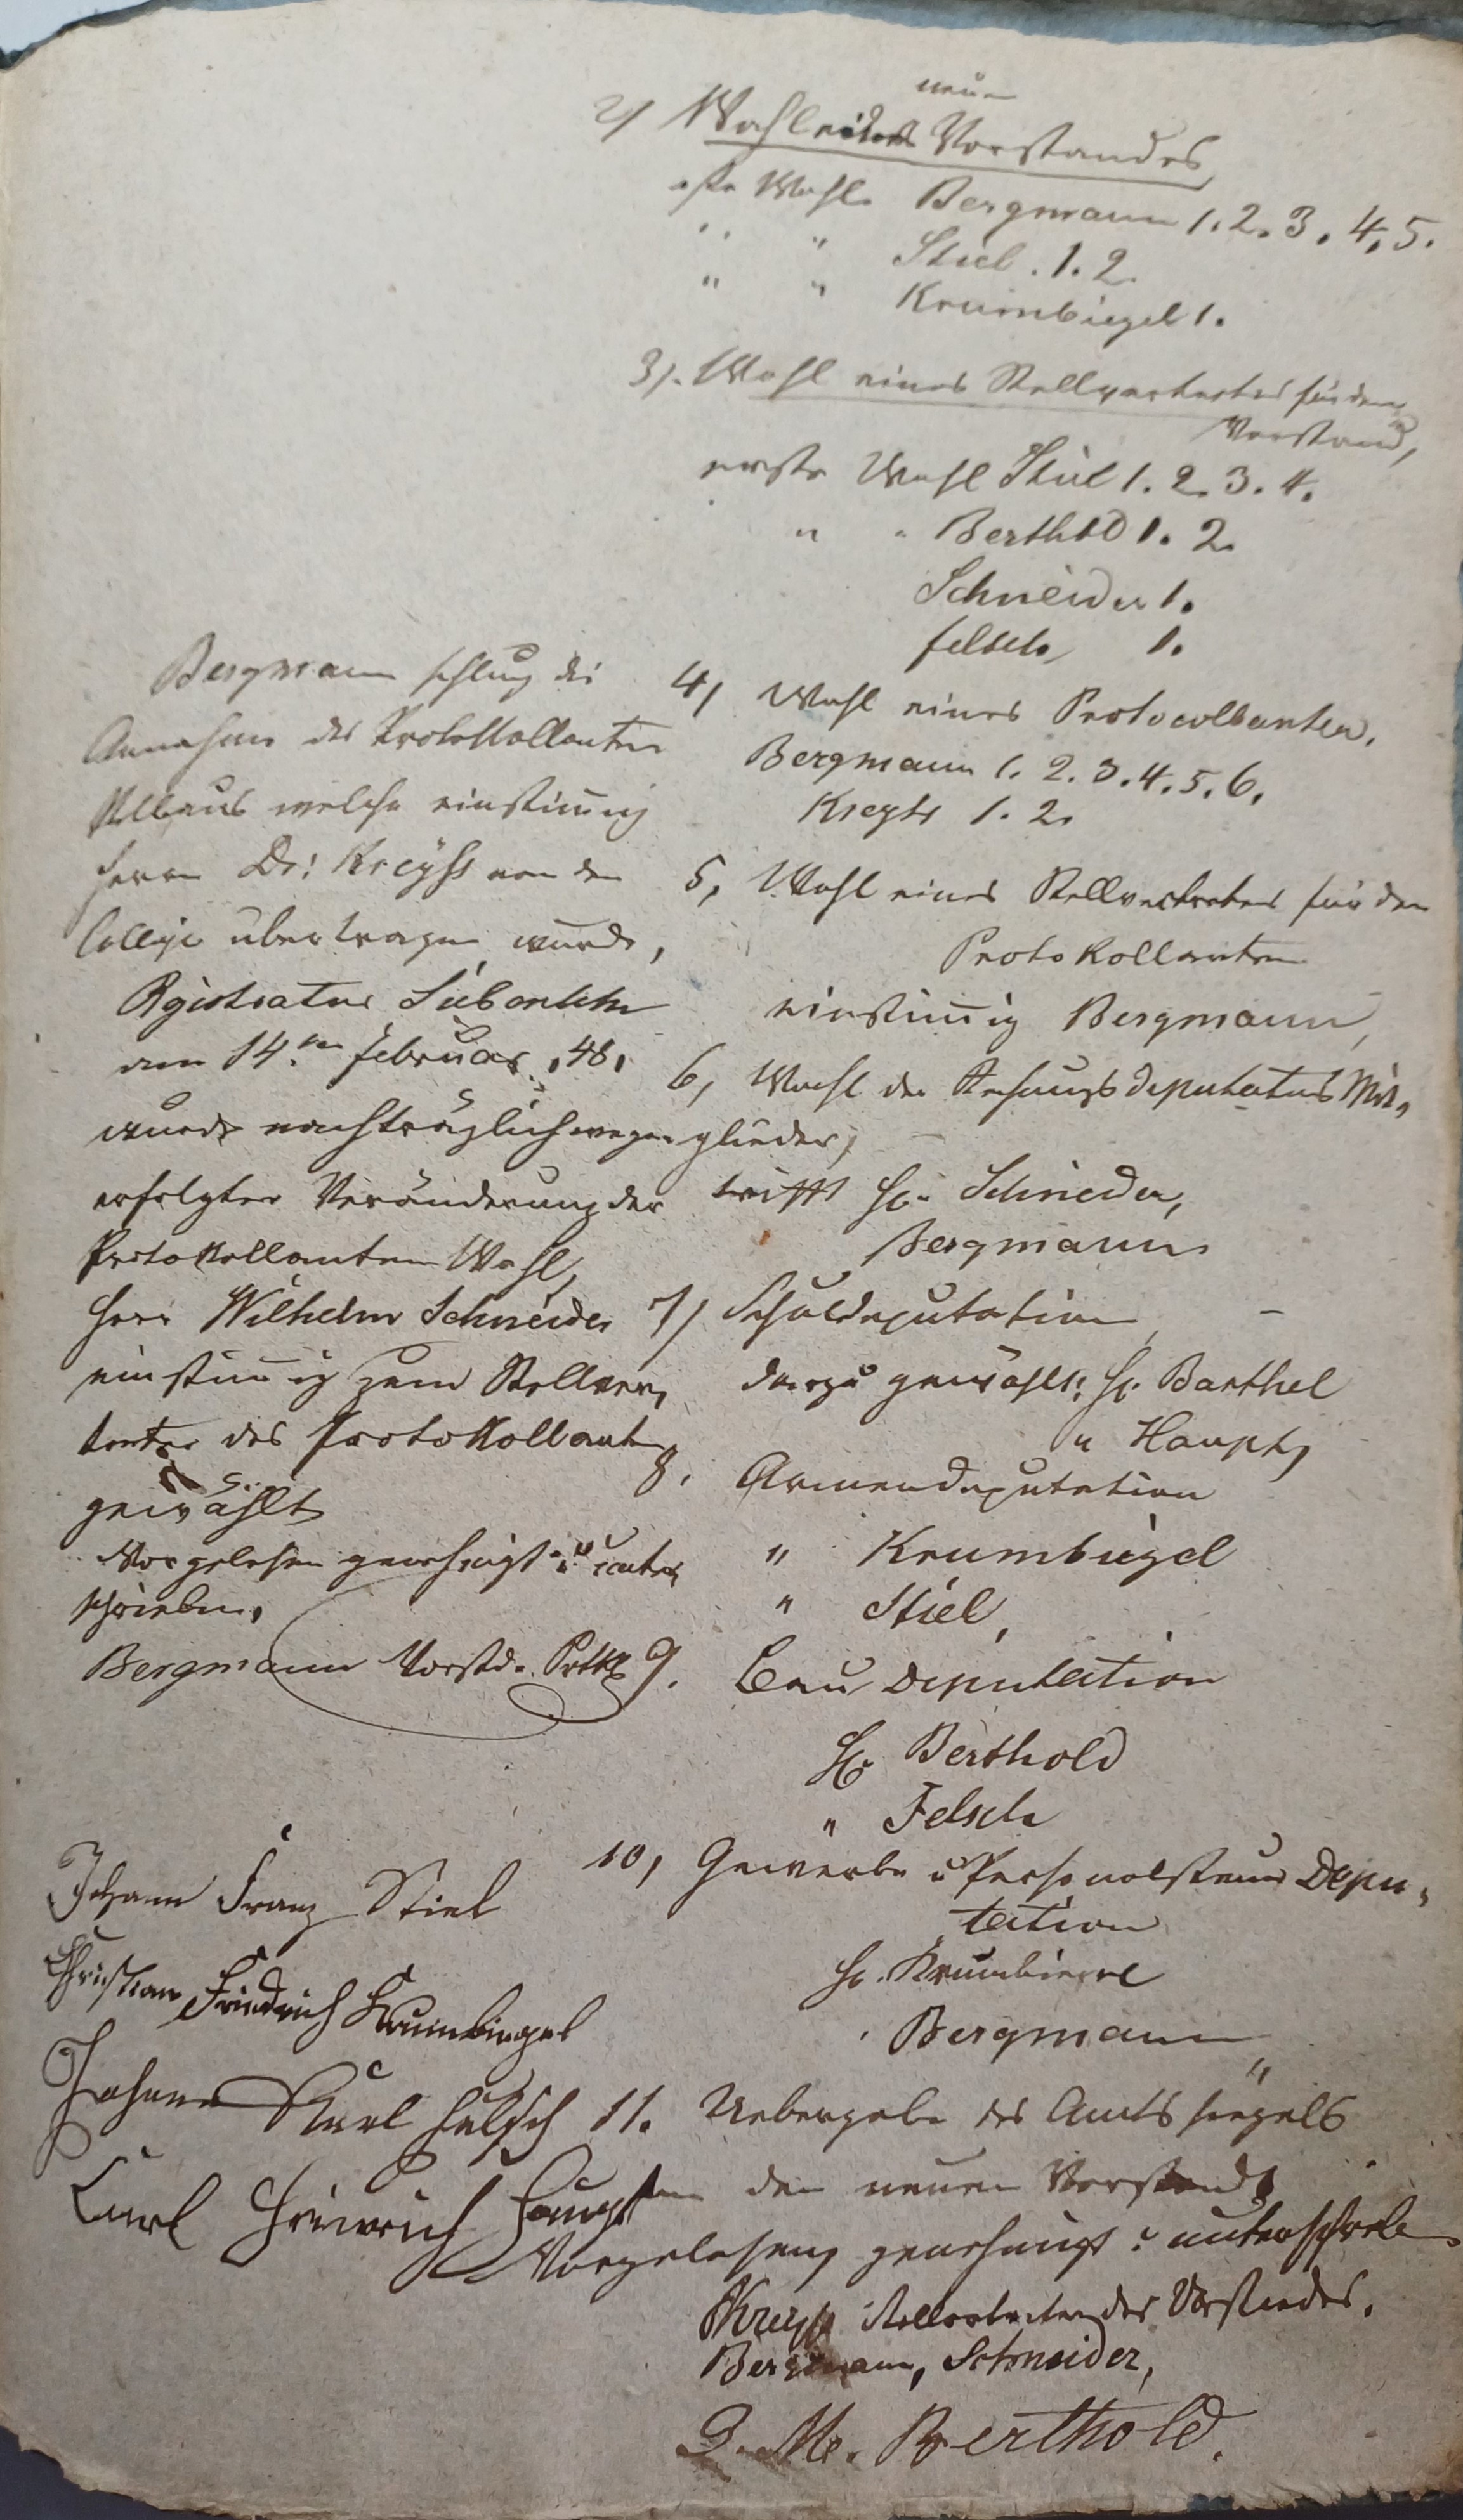 neuen
2) Wahl eines Vorstandes
erste Wahl. Bergmann 1. 2. 3. 4. 5.
" " Stiel. 1. 2.
" " Krumbiegel 1.
3). Wahl eines Stellvertreters für den
Vorstand,
erste Wahl Stiel 1. 2. 3. 4.
" " Berthold 1. 2.
Schneider 1.
Felsch 1.
4) Wahl eines Protocollanten.
Bergmann 1. 2. 3. 4. 5. 6.
Kreyss 1. 2.
5, Wahl eines Stellvertreters für den
Protokollanten
einstimig Bergmann,
6, Wahl der deputations Mit,
glieder,
trifft H. Schneider,
Bergmann
7) Schuldeputation,
dazu gewählt: H. Barthel
" Haupt,
8, Armendeputation
" Krumbiegel
" Stiel,
9. Bau Deputation
H. Berthold
" Felsch
10, Gewerbe u Personalsteuer Depu,
tation
H. Krumbiegel
" Bergmann
11. Uebergabe des Amtssiegels
an den neuen Vorstand,
Vorgelesen, genehmigt u unterschrieben
Kreyss Stellvertreter des Vorstandes.
Bergmann, Schneider,
Berthold.
Bergmann schlug die
Annahme des Protokollanten
welche einstimig
Herrn Dr: Kreyss von dem
Collegio übertragen wurde,
Registratur Siebenlehn
am 14.ten Februar. 48.
wurde nachträglich wegen
erfolgter Veränderung der
Protokollanten Wahl,
Herr Wilhelm Schneider
einstimig zum Stellver,
treter des Protokollanten
gewählt
Vorgelesen genehmigt u unter,
schrieben.
Bergmann Vorstd. Prtkl
Johann Franz Stiel
Christian Friedrich Krumbiegel
Johann Karl Felsch
Carl Heinrich Haupt